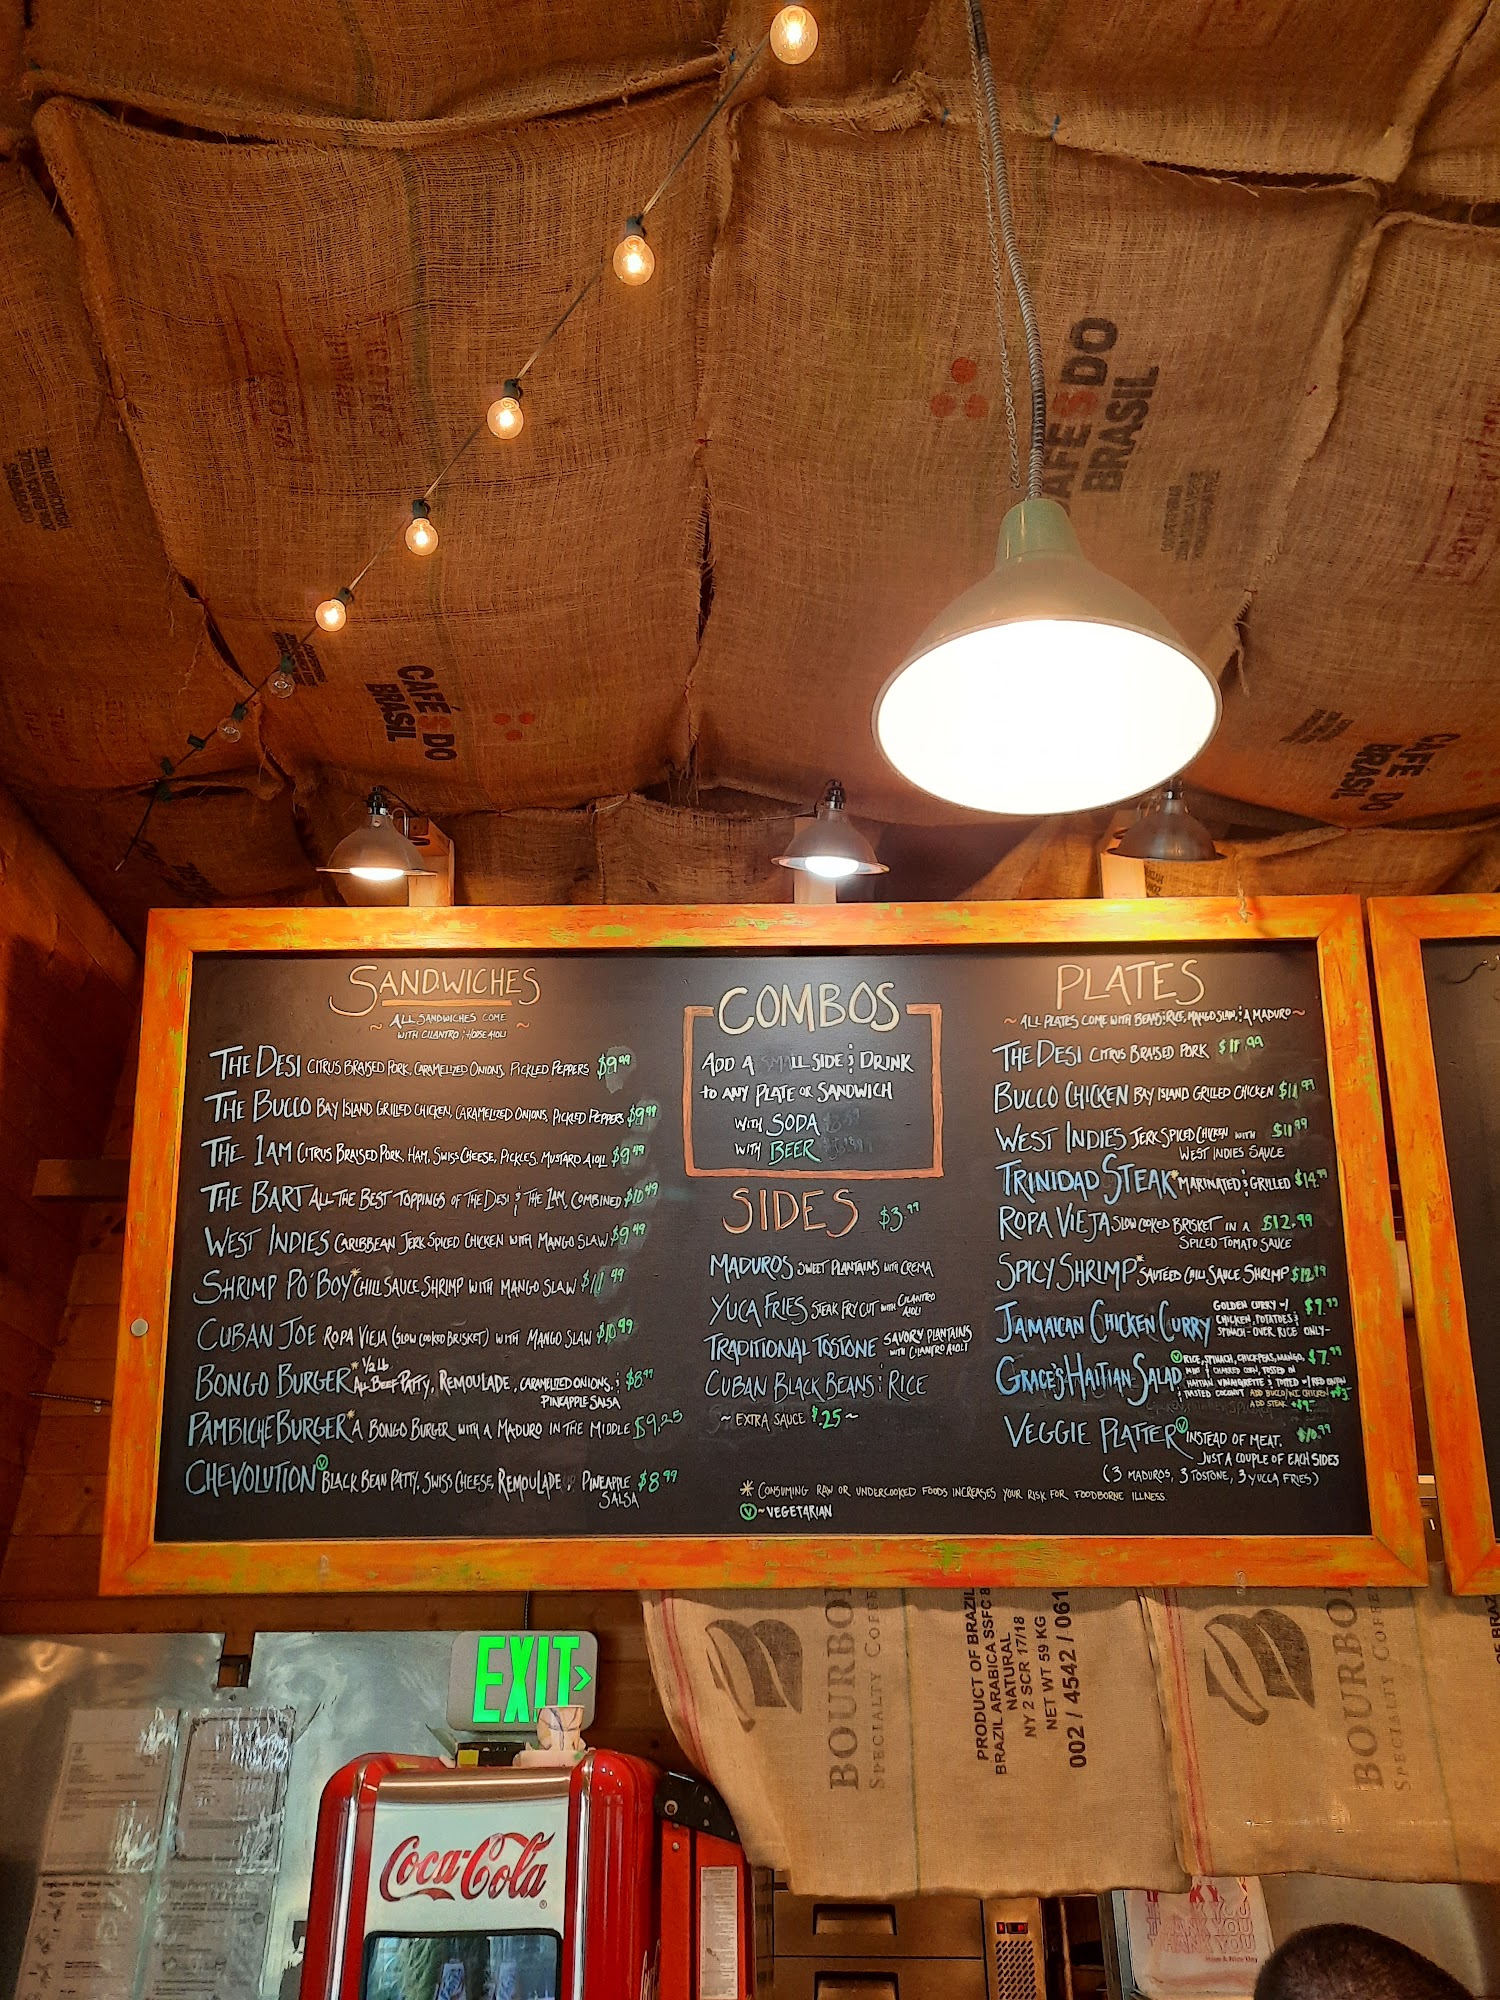 CAFÉS DO
BRASIL
CAFÉS DO
BRASIL
CAFÉS DO
BRASIL
SANDWICHES
~ ALL SANDWICHES COME ~
WITH CILANTRO & HORSE AIOLI
THE DESI CITRUS BRAISED PORK, CARAMELIZED ONIONS, PICKLED PEPPERS $9.49
THE BUCCO BAY ISLAND GRILLED CHICKEN, CARAMELIZED ONIONS, PICKLED PEPPERS $9.49
THE 1AM CITRUS BRAISED PORK, HAM, SWISS CHEESE, PICKLES, MUSTARD AIOLI $9.49
THE BART ALL THE BEST TOPPINGS OF THE DESI & THE 1AM, COMBINED $10.49
WEST INDIES CARIBBEAN JERK SPICED CHICKEN WITH MANGO SLAW $9.49
SHRIMP PO'BOY* CHILI SAUCE SHRIMP WITH MANGO SLAW $11.49
CUBAN JOE ROPA VIEJA (SLOW COOKED BRISKET) WITH MANGO SLAW $10.99
BONGO BURGER* 1/2 LB. ALL BEEF PATTY, REMOULADE, CARAMELIZED ONIONS, & $8.99
PINEAPPLE SALSA
PAMBICHE BURGER* A BONGO BURGER WITH A MADURO IN THE MIDDLE $9.25
CHEVOLUTION Ⓥ BLACK BEAN PATTY, SWISS CHEESE, REMOULADE & PINEAPPLE $8.99
SALSA
COMBOS
ADD A SMALL SIDE & DRINK
TO ANY PLATE OR SANDWICH
WITH SODA
WITH BEER
SIDES $3.99
MADUROS SWEET PLANTAINS WITH CREMA
YUCA FRIES STEAK FRY CUT WITH CILANTRO AIOLI
TRADITIONAL TOSTONE SAVORY PLANTAINS
WITH CILANTRO AIOLI
CUBAN BLACK BEANS & RICE
~ EXTRA SAUCE $.25 ~
PLATES
~ ALL PLATES COME WITH BEANS & RICE, MANGO SLAW, & A MADURO ~
THE DESI CITRUS BRAISED PORK $11.99
BUCCO CHICKEN BAY ISLAND GRILLED CHICKEN $11.99
WEST INDIES JERK SPICED CHICKEN WITH $11.99
WEST INDIES SAUCE
TRINIDAD STEAK* MARINATED & GRILLED $14.99
ROPA VIEJA SLOW COOKED BRISKET IN A $12.99
SPICED TOMATO SAUCE
SPICY SHRIMP* SAUTÉED CHILI SAUCE SHRIMP $12.99
JAMAICAN CHICKEN CURRY GOLDEN CURRY W/ $9.99
CHICKEN, POTATOES &
SPINACH - OVER RICE ONLY -
GRACE'S HAITIAN SALAD Ⓥ RICE, SPINACH, CHICKPEAS, MANGO, $7.99
MINT & CHARRED CORN, TOSSED IN
HAITIAN VINAIGRETTE & TOPPED W/ RED ONION
& TOASTED COCONUT ADD BUCCO/WI CHICKEN +$3
ADD STEAK
VEGGIE PLATTER Ⓥ INSTEAD OF MEAT. $10.99
JUST A COUPLE OF EACH SIDES
(3 MADUROS, 3 TOSTONE, 3 YUCCA FRIES)
* CONSUMING RAW OR UNDERCOOKED FOODS INCREASES YOUR RISK FOR FOODBORNE ILLNESS.
Ⓥ ~ VEGETARIAN
EXIT
Coca-Cola
BOURBON
SPECIALTY COFFEE
PRODUCT OF BRAZIL
BRAZIL ARABICA SSFC 8
NATURAL
NY 2 SCR 17/18
NET WT 59 KG
002 / 4542 / 061
BOURBON
SPECIALTY COFFEE
THANK YOU
Have A Nice Day